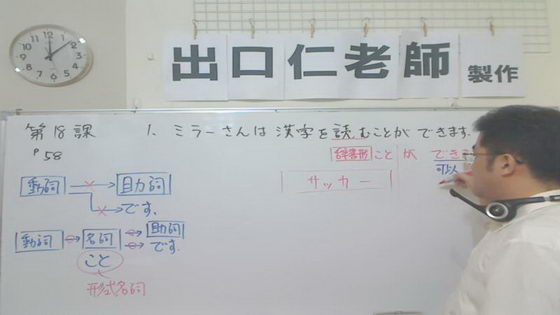 出口仁老師 製作
第18課
P58
1. ミラーさんは漢字を読むことができます。
辞書形 こと が でき
可以
サッカー
動詞 助詞
です.
動詞 名詞 助詞
です.
こと
形式名詞